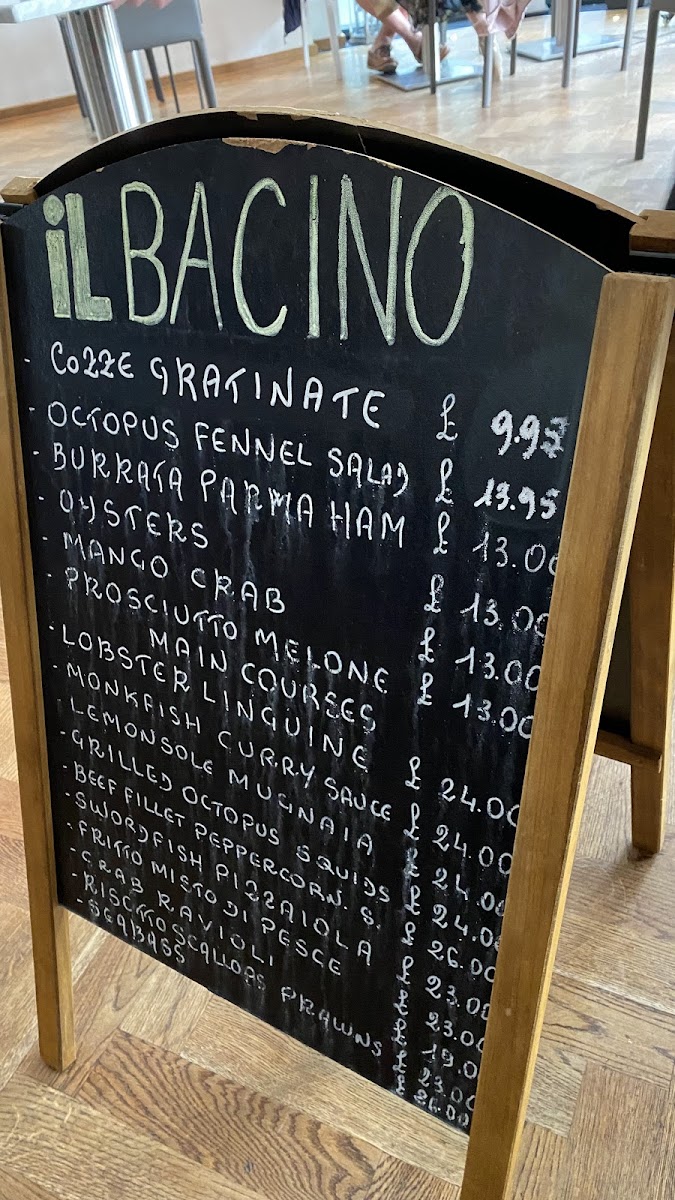 iL BACINO
- COZZE GRATINATE £ 9.95
- OCTOPUS FENNEL SALAD £ 13.95
- BURRATA PARMA HAM £ 13.00
- OYSTERS £ 13.00
- MANGO CRAB £ 13.00
- PROSCIUTTO MELONE £ 13.00
MAIN COURSES
- LOBSTER LINGUINE £ 24.00
- MONKFISH CURRY SAUCE £ 24.00
- LEMONSOLE MUGNAIA £ 24.00
- GRILLED OCTOPUS SQUIDS £ 24.00
- BEEF FILLET PEPPERCORN. S. £ 26.00
- SWORDFISH PIZZAIOLA £ 23.00
- FRITTO MISTO DI PESCE £ 23.00
- CRAB RAVIOLI £ 19.0
- RISOTTO SCALLOAS PRAWNS £ 23.00
- SEABASS £ 24.00